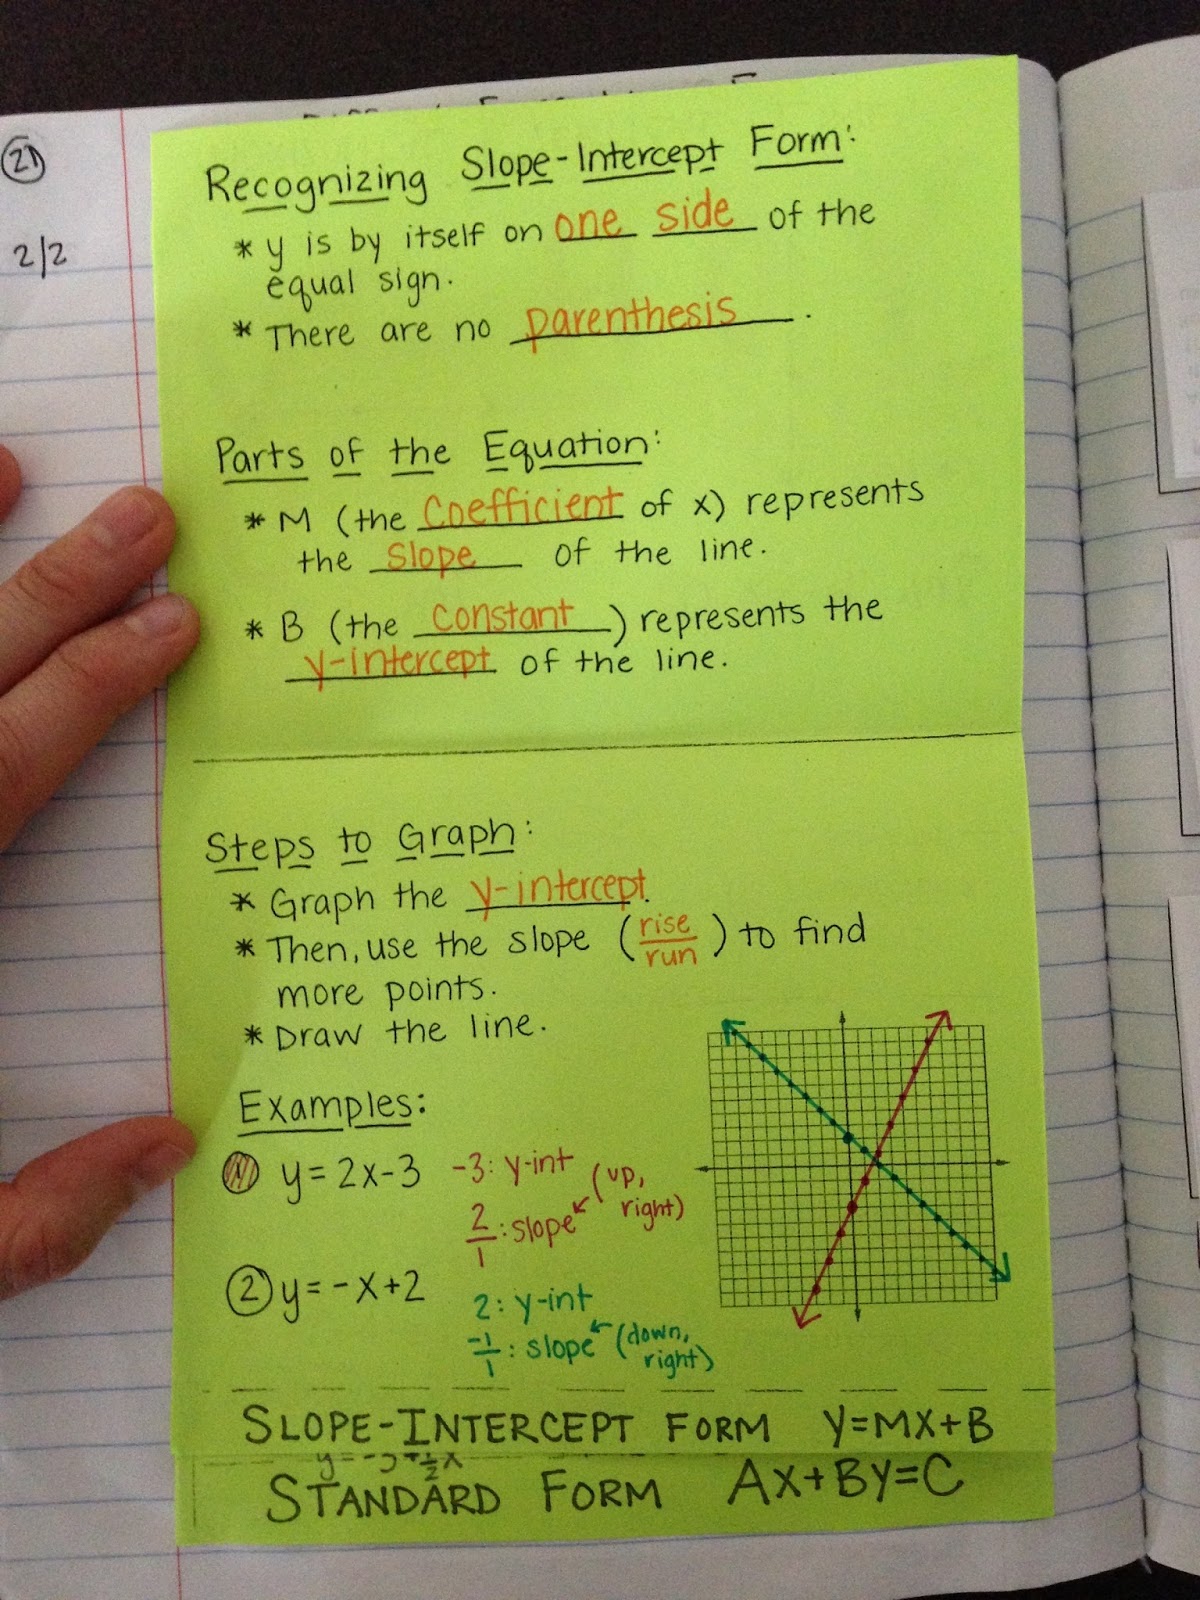 21
2/2
Recognizing Slope-Intercept Form:
* y is by itself on one side of the
equal sign.
* There are no parenthesis.
Parts of the Equation:
* M (the coefficient of x) represents
the slope of the line.
* B (the constant) represents the
y-intercept of the line.
Steps to Graph:
* Graph the y-intercept.
* Then, use the slope (rise/run) to find
more points.
* Draw the line.
Examples:
1 y=2x-3
-3: y-int
2/1: slope (up,
right)
2 y=-x+2
2: y-int
-1/1: slope (down,
right)
SLOPE-INTERCEPT FORM Y=MX+B
STANDARD FORM AX+BY=C